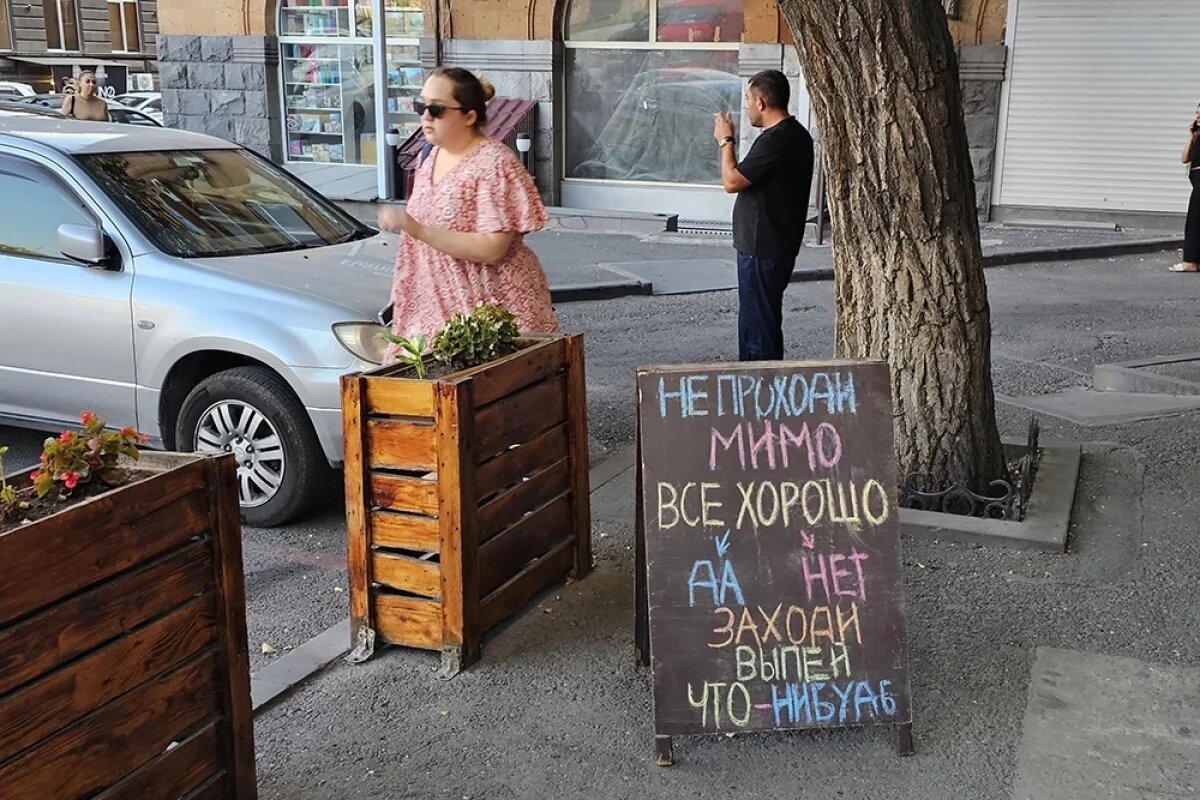 НЕ ПРОХОДИ
МИМО
ВСЕ ХОРОШО
ДА НЕТ
ЗАХОДИ
ВЫПЕЙ
ЧТО-НИБУДЬ